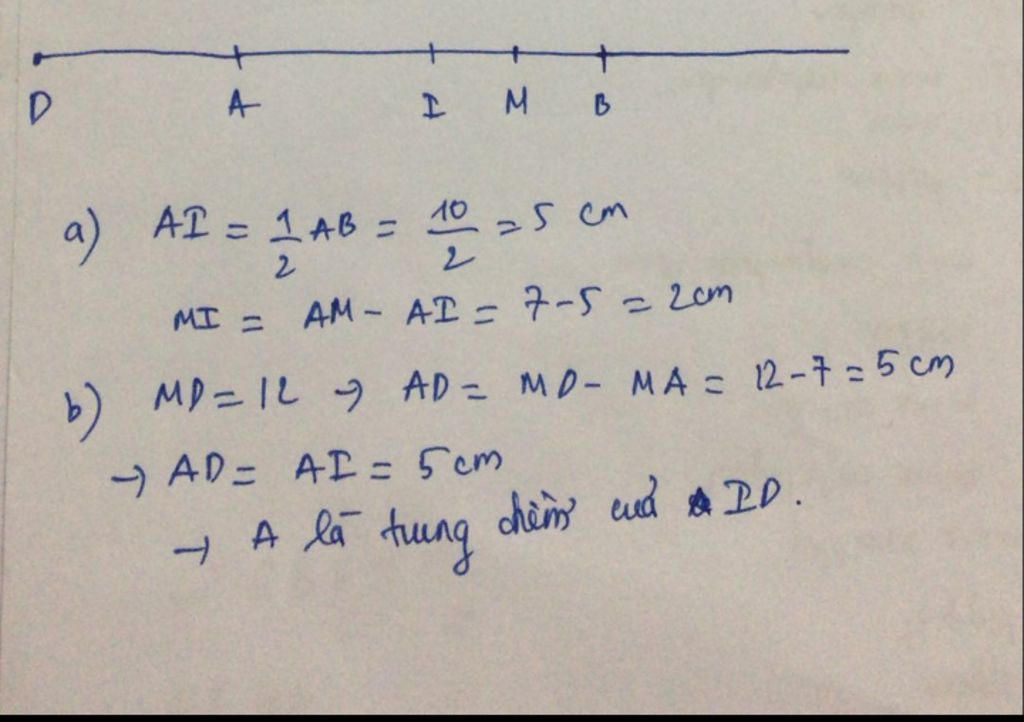 D A I M B
a) AI = 1/2 AB = 10/2 = 5 cm
MI = AM - AI = 7-5 = 2cm
b) MD = 12 → AD = MD - MA = 12-7 = 5 cm
→ AD = AI = 5cm
→ A là trung điểm của ID.